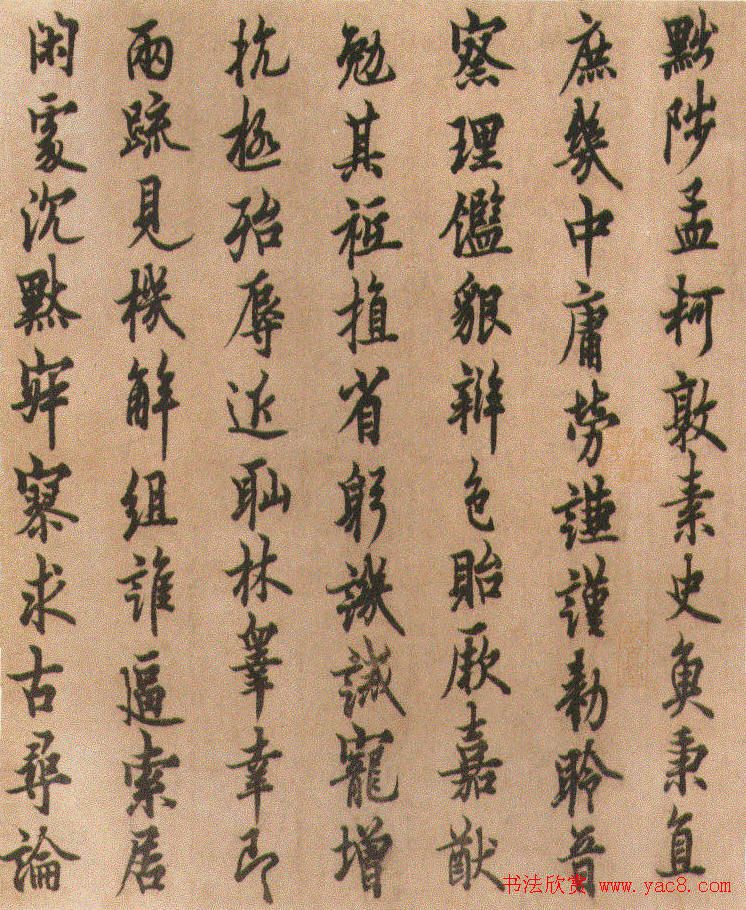 黜陟孟柯敦素史魚秉直
庶幾中庸勞謙謹勅聆音
察理鑑貌辨色貽厥嘉猷
勉其祗植省躬譏誡寵增
抗極殆辱近耻林睪幸即
兩疏見機解組誰逼索居
閑處沉默寂寥求古尋論
书法欣赏 www.yac8.com